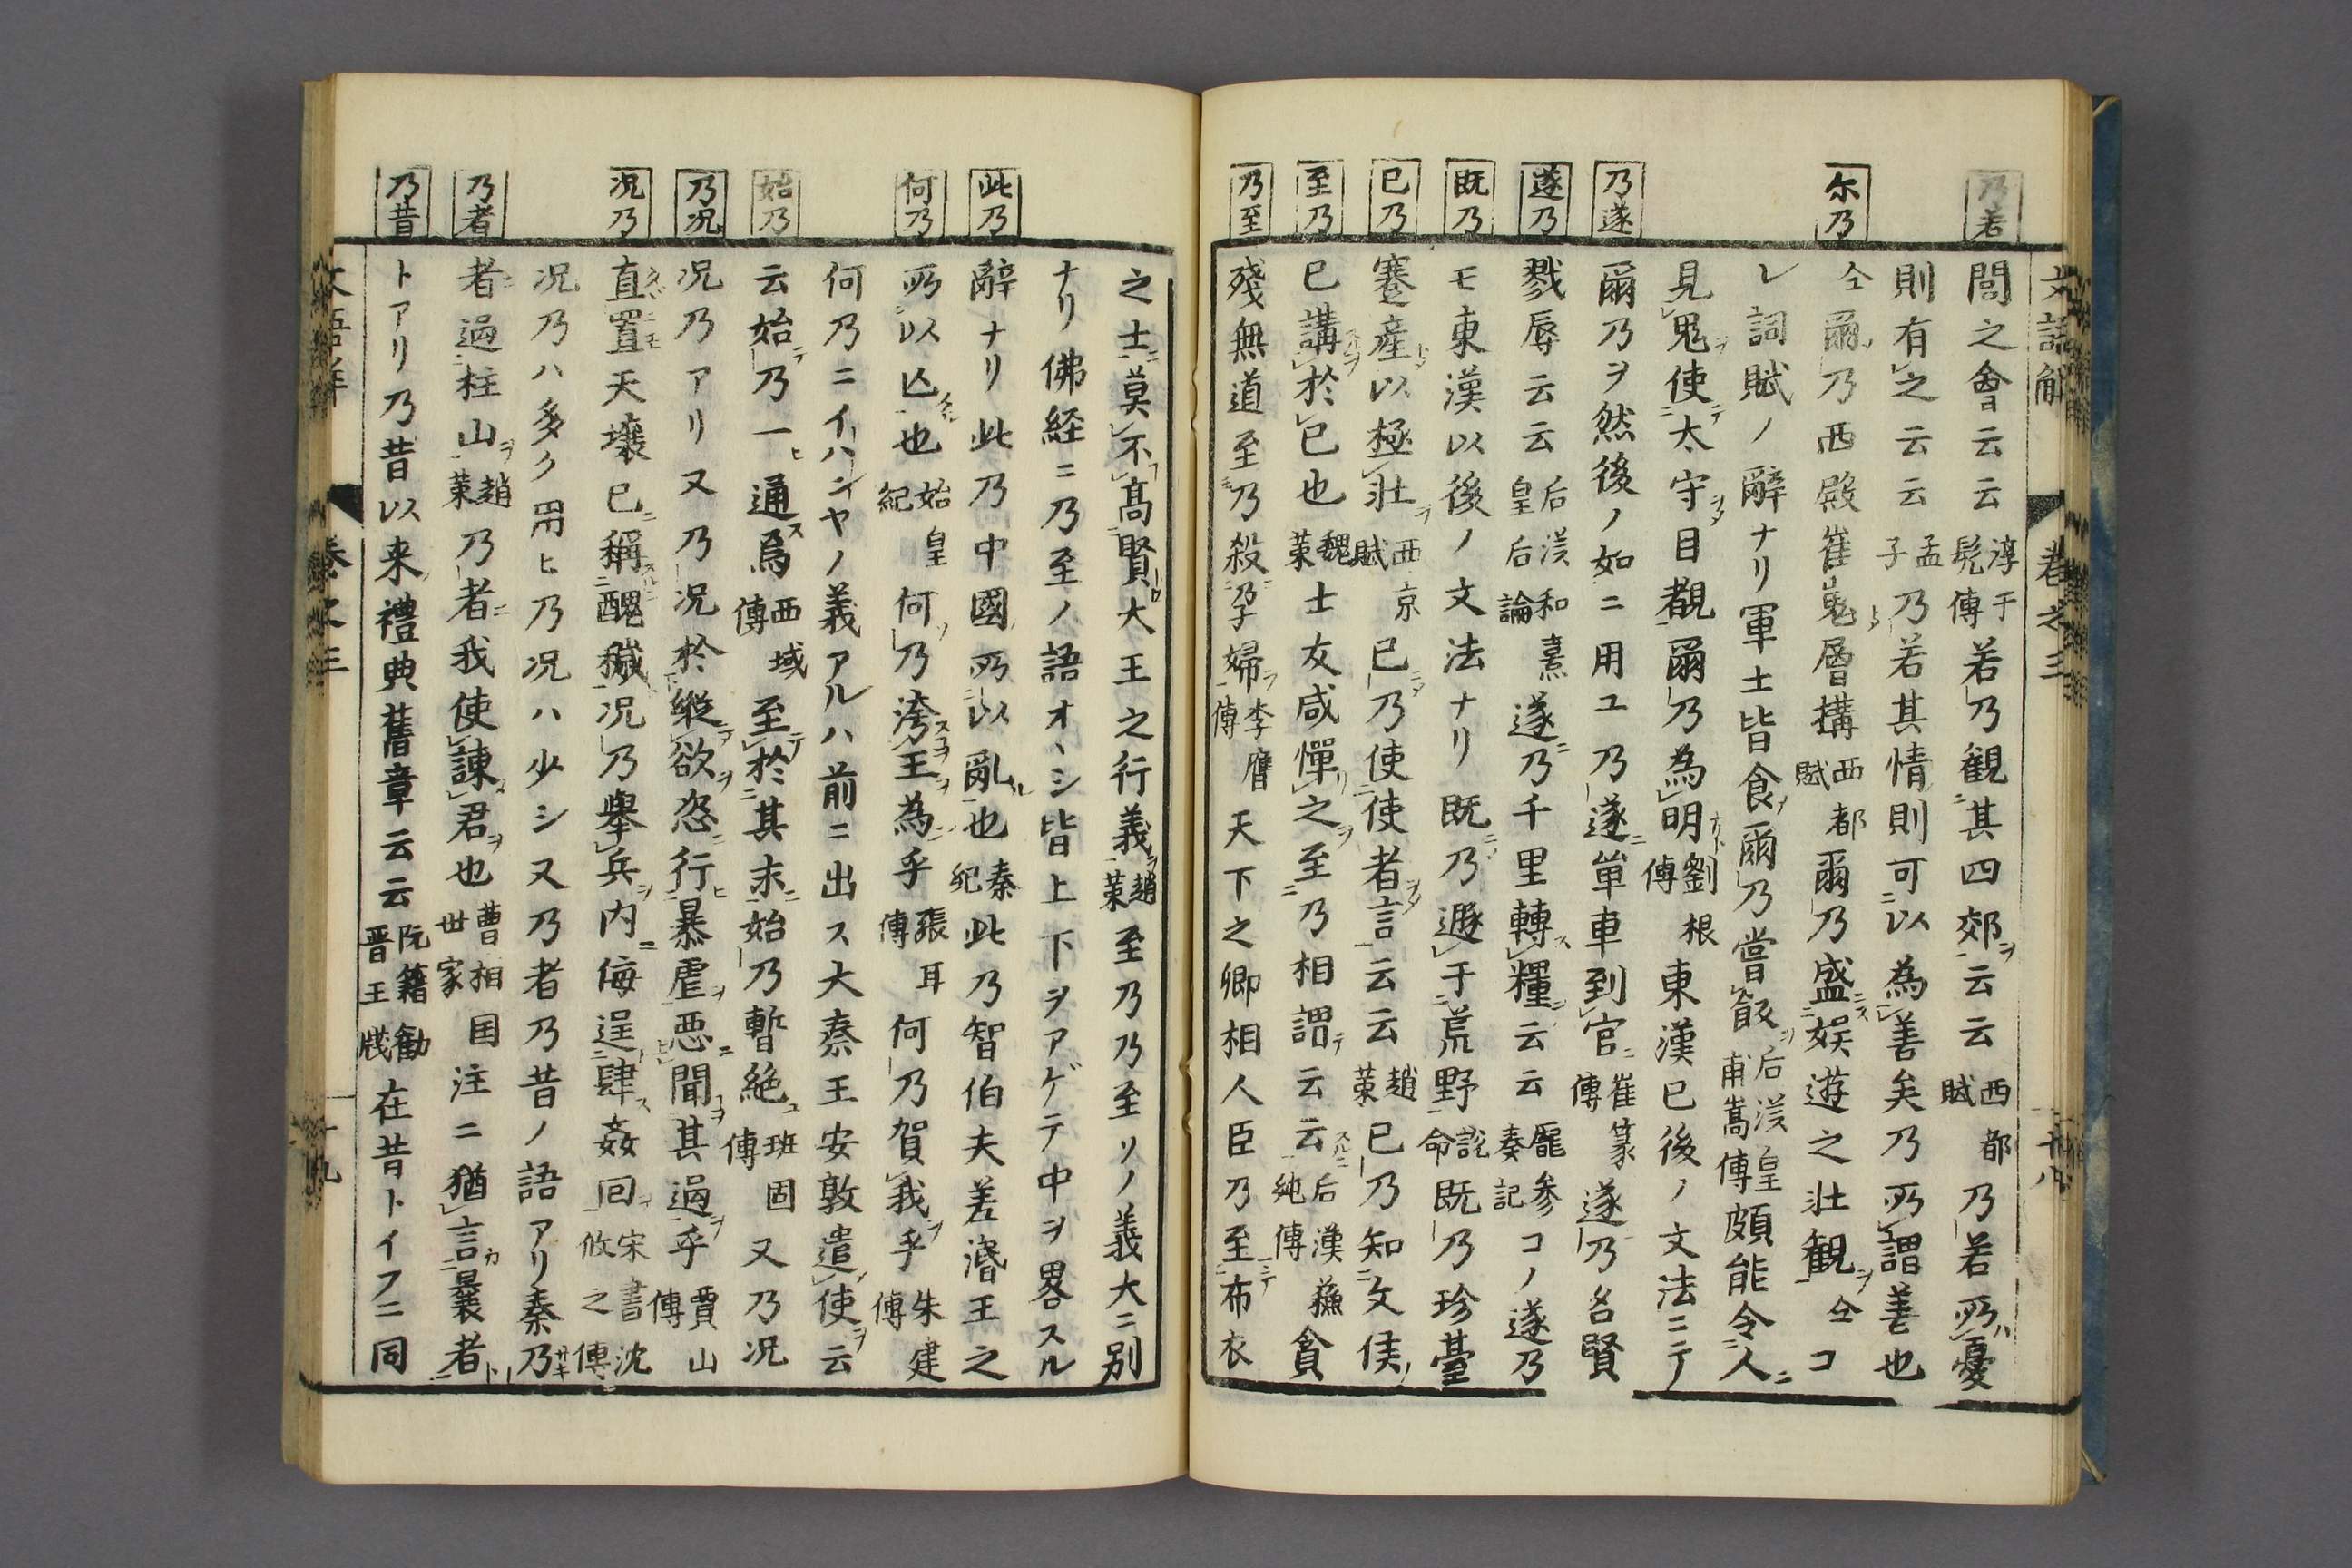 乃若
尓乃
乃遂
遂乃
既乃
已乃
至乃
乃至
閭之會云云淳于髡傳若乃観其四郊云云西都賦乃若所憂
則有之云云孟子乃若其情則可以為善矣乃所謂善也
仝爾乃西殿崔嵬層構西都賦爾乃盛娯遊之壮観仝コ
レ詞賦ノ辭ナリ軍士皆食爾乃嘗飯后漢皇甫嵩傳頗能令人
見鬼使太守目覩爾乃為明劉根傳東漢已後ノ文法ニテ
爾乃ヲ然後ノ如ニ用ユ乃遂単車到官崔篆傳遂乃名賢
戮辱云云后漢和熹皇后論遂乃千里轉糧云云龐参奏記コノ遂乃
モ東漢以後ノ文法ナリ既乃遯于荒野説命既乃珍臺
蹇産以極壮西京賦已乃使使者言云云趙策已乃知文侯
已講於已也魏策士女咸憚之至乃相謂云云后漢蘓純傳貪
殘無道至乃殺孕婦李膺傳天下之卿相人臣乃至布衣
文語解 巻之三 十八
此乃
何乃
始乃
乃况
况乃
乃者
乃昔
之士莫不髙賢大王之行義趙策至乃乃至リノ義大ニ别
ナリ佛経ニ乃至ノ語オヽシ皆上下ヲアゲテ中ヲ畧スル
辭ナリ此乃中國所以亂也秦紀此乃智伯夫差湣王之
所以亾也始皇紀何乃洿王為乎張耳傳何乃賀我乎朱建傳
何乃ニイハンヤノ義アルハ前ニ出ス大秦王安敦遣使云
云始乃一通焉西域傳至於其末始乃暫絶班固傳又乃况
况乃アリ又乃况於縦欲恣行暴虐悪聞其過乎賈山傳
直置天壌已稱醜穢况乃舉兵内侮逞肆姦回宋書沈攸之傳
况乃ハ多ク用ヒ乃况ハ少シ又乃者乃昔ノ語アリ秦乃
者過柱山趙策乃者我使諌君也曹相国世家注ニ猶言曩者
トアリ乃昔以来禮典舊章云云阮籍勸晋王牋在昔トイフニ同
文語解 巻之三 十九